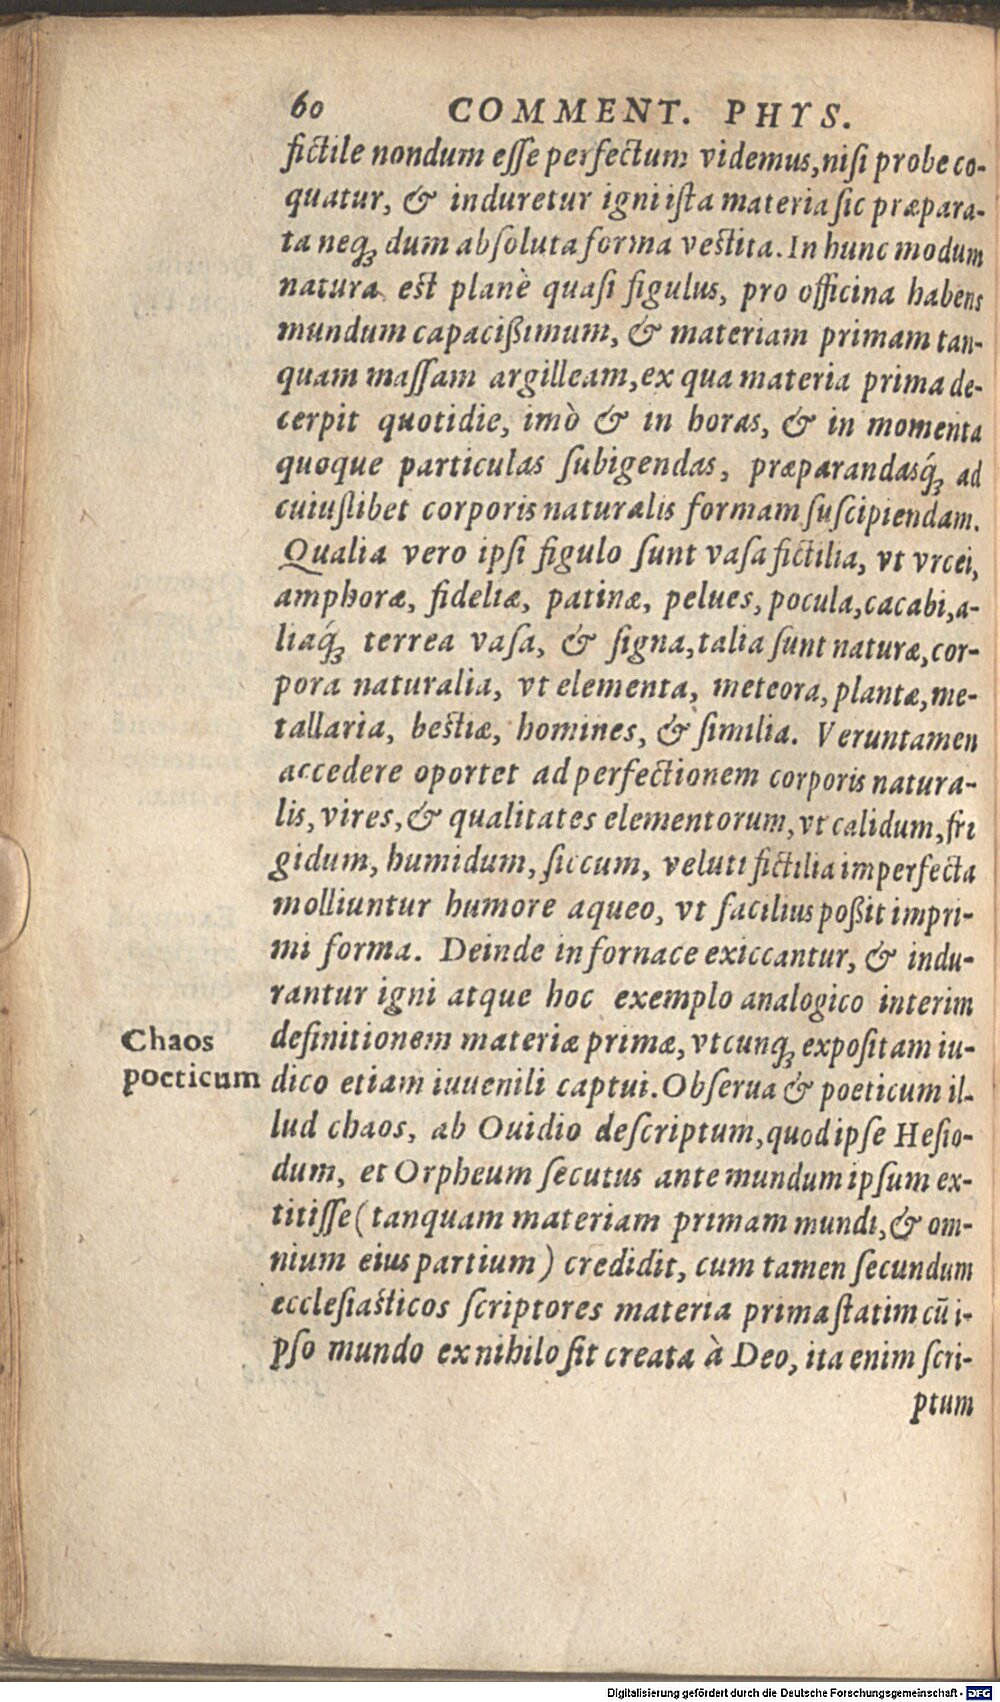 60 COMMENT. PHYS.
fictile nondum esse perfectum videmus, nisi probe co-
quatur, & induretur igni ista materia sic præpara-
ta neqꝫ dum absoluta forma vestita. In hunc modum
natura est planè quasi figulus, pro officina habens
mundum capacißimum, & materiam primam tan-
quam massam argilleam, ex qua materia prima de-
cerpit quotidie, imò & in horas, & in momenta
quoque particulas subigendas, præparandasq́ꝫ ad
cuiuslibet corporis naturalis formam suscipiendam.
Qualia vero ipsi figulo sunt vasa fictilia, vt vrcei,
amphoræ, fideliæ, patinæ, pelues, pocula, cacabi, a-
liaq́ꝫ terrea vasa, & signa, talia sunt naturæ, cor-
pora naturalia, vt elementa, meteora, plantæ, me-
tallaria, bestiæ, homines, & similia. Veruntamen
accedere oportet ad perfectionem corporis natura-
lis, vires, & qualitates elementorum, vt calidum, fri
gidum, humidum, siccum, veluti fictilia imperfecta
molliuntur humore aqueo, vt facilius poßit impri-
mi forma. Deinde in fornace exiccantur, & indu-
rantur igni atque hoc exemplo analogico interim
Chaos
poeticum
definitionem materiæ primæ, vtcunqꝫ expositam iu-
dico etiam iuuenili captui. Obserua & poeticum il-
lud chaos, ab Ouidio descriptum, quod ipse Hesio-
dum, et Orpheum secutus ante mundum ipsum ex-
titisse (tanquam materiam primam mundi, & om-
nium eius partium) credidit, cum tamen secundum
ecclesiasticos scriptores materia prima statim cū i-
pso mundo ex nihilo sit creata à Deo, ita enim scri-
ptum
Digitalisierung gefördert durch die Deutsche Forschungsgemeinschaft - DFG